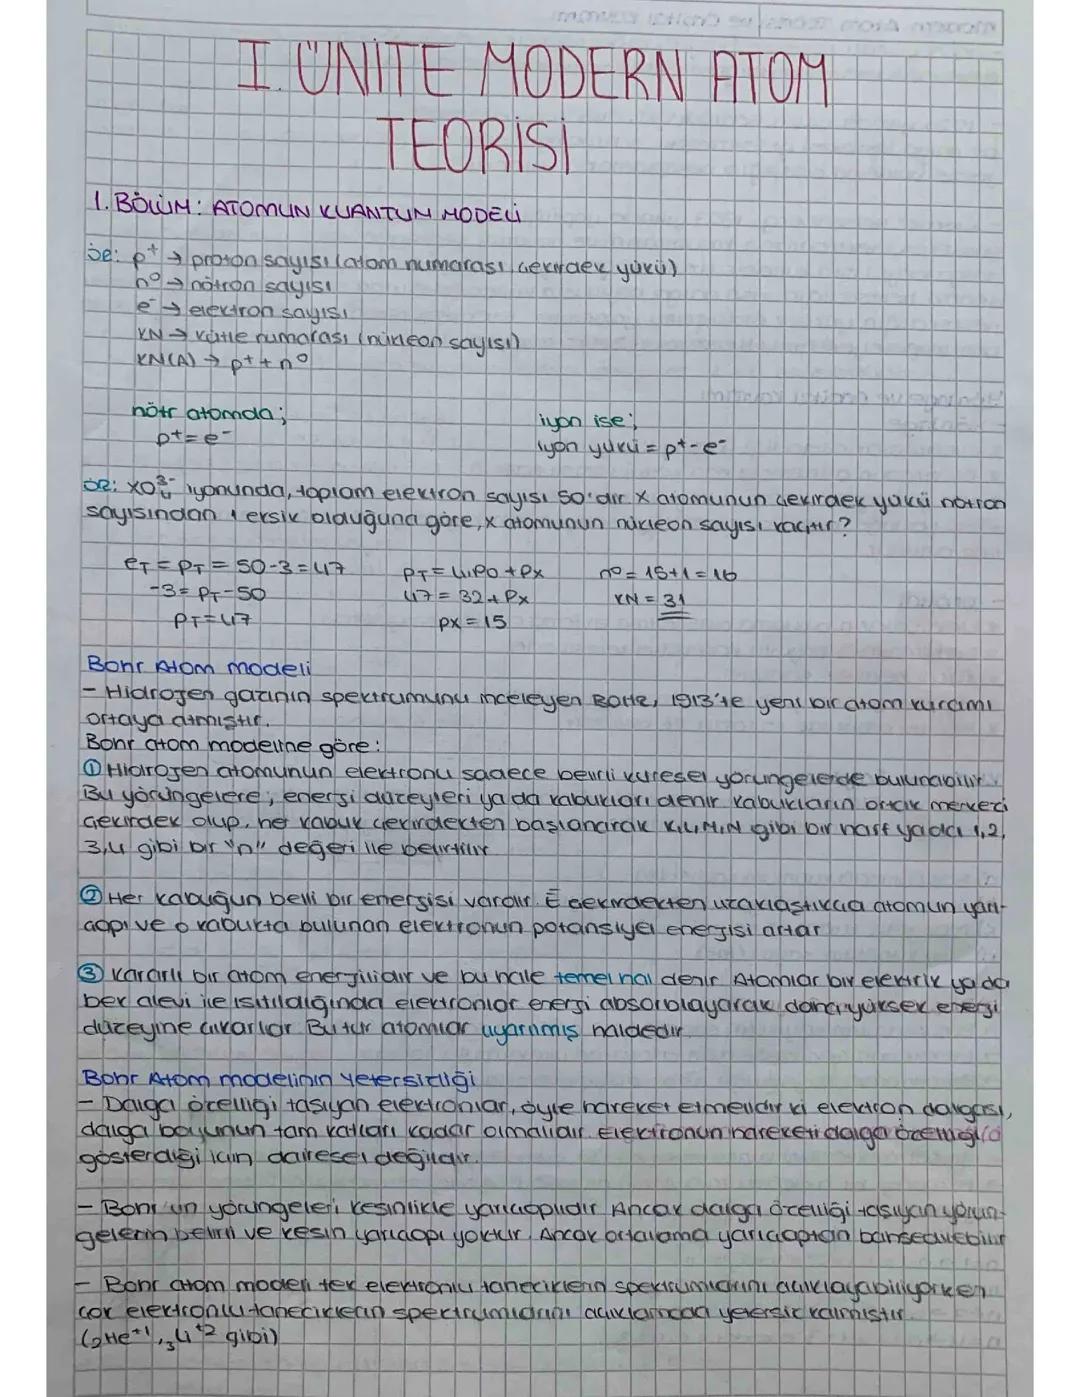 I. ÜNİTE MODERN ATOM
TEORİSİ
1. BÖLÜM: ATOMUN KUANTUM MODELİ
p⁺ → proton sayısı (atom numarası, çekirdek yükü)
n⁰ → nötron sayısı
e⁻ → elektron sayısı
KN → kütle numarası (nükleon sayısı)
KN(A) → p⁺ + n⁰
nötr atomda;
p⁺ = e⁻
iyon ise;
iyon yükü = p⁺ - e⁻
ÖR: XO₄³⁻ iyonunda, toplam elektron sayısı 50'dir. X atomunun çekirdek yükü nötron
sayısından 1 eksik olduğuna göre, X atomunun nükleon sayısı kaçtır?
eT = pT = 50-3 = 47
-3 = pT-50
pT = 47
pT = 4.pO + px
47 = 32 + px
px = 15
n⁰ = 15+1 = 16
KN = 31
Bohr Atom modeli
- Hidrojen gazının spektrumunu inceleyen Bohr, 1913'te yeni bir atom kuramı
ortaya atmıştır.
Bohr atom modeline göre:
① Hidrojen atomunun elektronu sadece belirli küresel yörüngelerde bulunabilir.
Bu yörüngelere; enerji düzeyleri ya da kabukları denir. Kabukların ortak merkezi
çekirdek olup, her kabuk çekirdekten başlanarak K,L,M,N gibi bir harf ya da 1,2,
3,4 gibi bir "n" değeri ile belirtilir.
② Her kabuğun belli bir enerjisi vardır. Ē çekirdekten uzaklaştıkça atomun yarı-
çapı ve o kabukta bulunan elektronun potansiyel enerjisi artar
③ Kararlı bir atom enerjilidir ve bu hale temel hal denir. Atomlar bir elektrik ya da
bek alevi ile ısıtıldığında elektronlar enerji absorblayarak daha yüksek enerji
düzeyine çıkarlar. Bu tür atomlar uyarılmış haldedir.
Bohr Atom modelinin Yetersizliği
- Dalga özelliği taşıyan elektronlar, öyle hareket etmelidir ki elektron dalgası,
dalga boyunun tam katları kadar olmalıdır. Elektronun hareketi dalga özelliği
gösterdiği için dairesel değildir.
- Bohr'un yörüngeleri kesinlikle yarıçaplıdır. Ancak dalga özelliği taşıyan yörün-
gelerin belirli ve kesin yarıçapı yoktur. Ancak ortalama yarıçaptan bahsedilebilir
- Bohr atom modeli tek elektronlu taneciklerin spektrumlarını açıklayabiliyorken
çok elektronlu taneciklerin spektrumlarını açıklamada yetersiz kalmıştır.
(₂He⁺¹, ₃Li⁺² gibi)